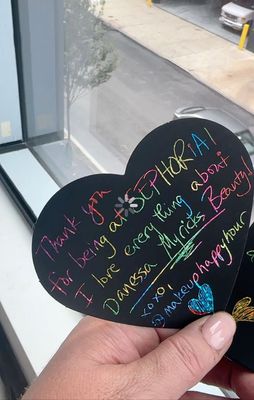 Thank you
for being at SEPHORiA!
I love everything about
Danessa Myricks Beauty!
xoxo,
@makeuphappyhour